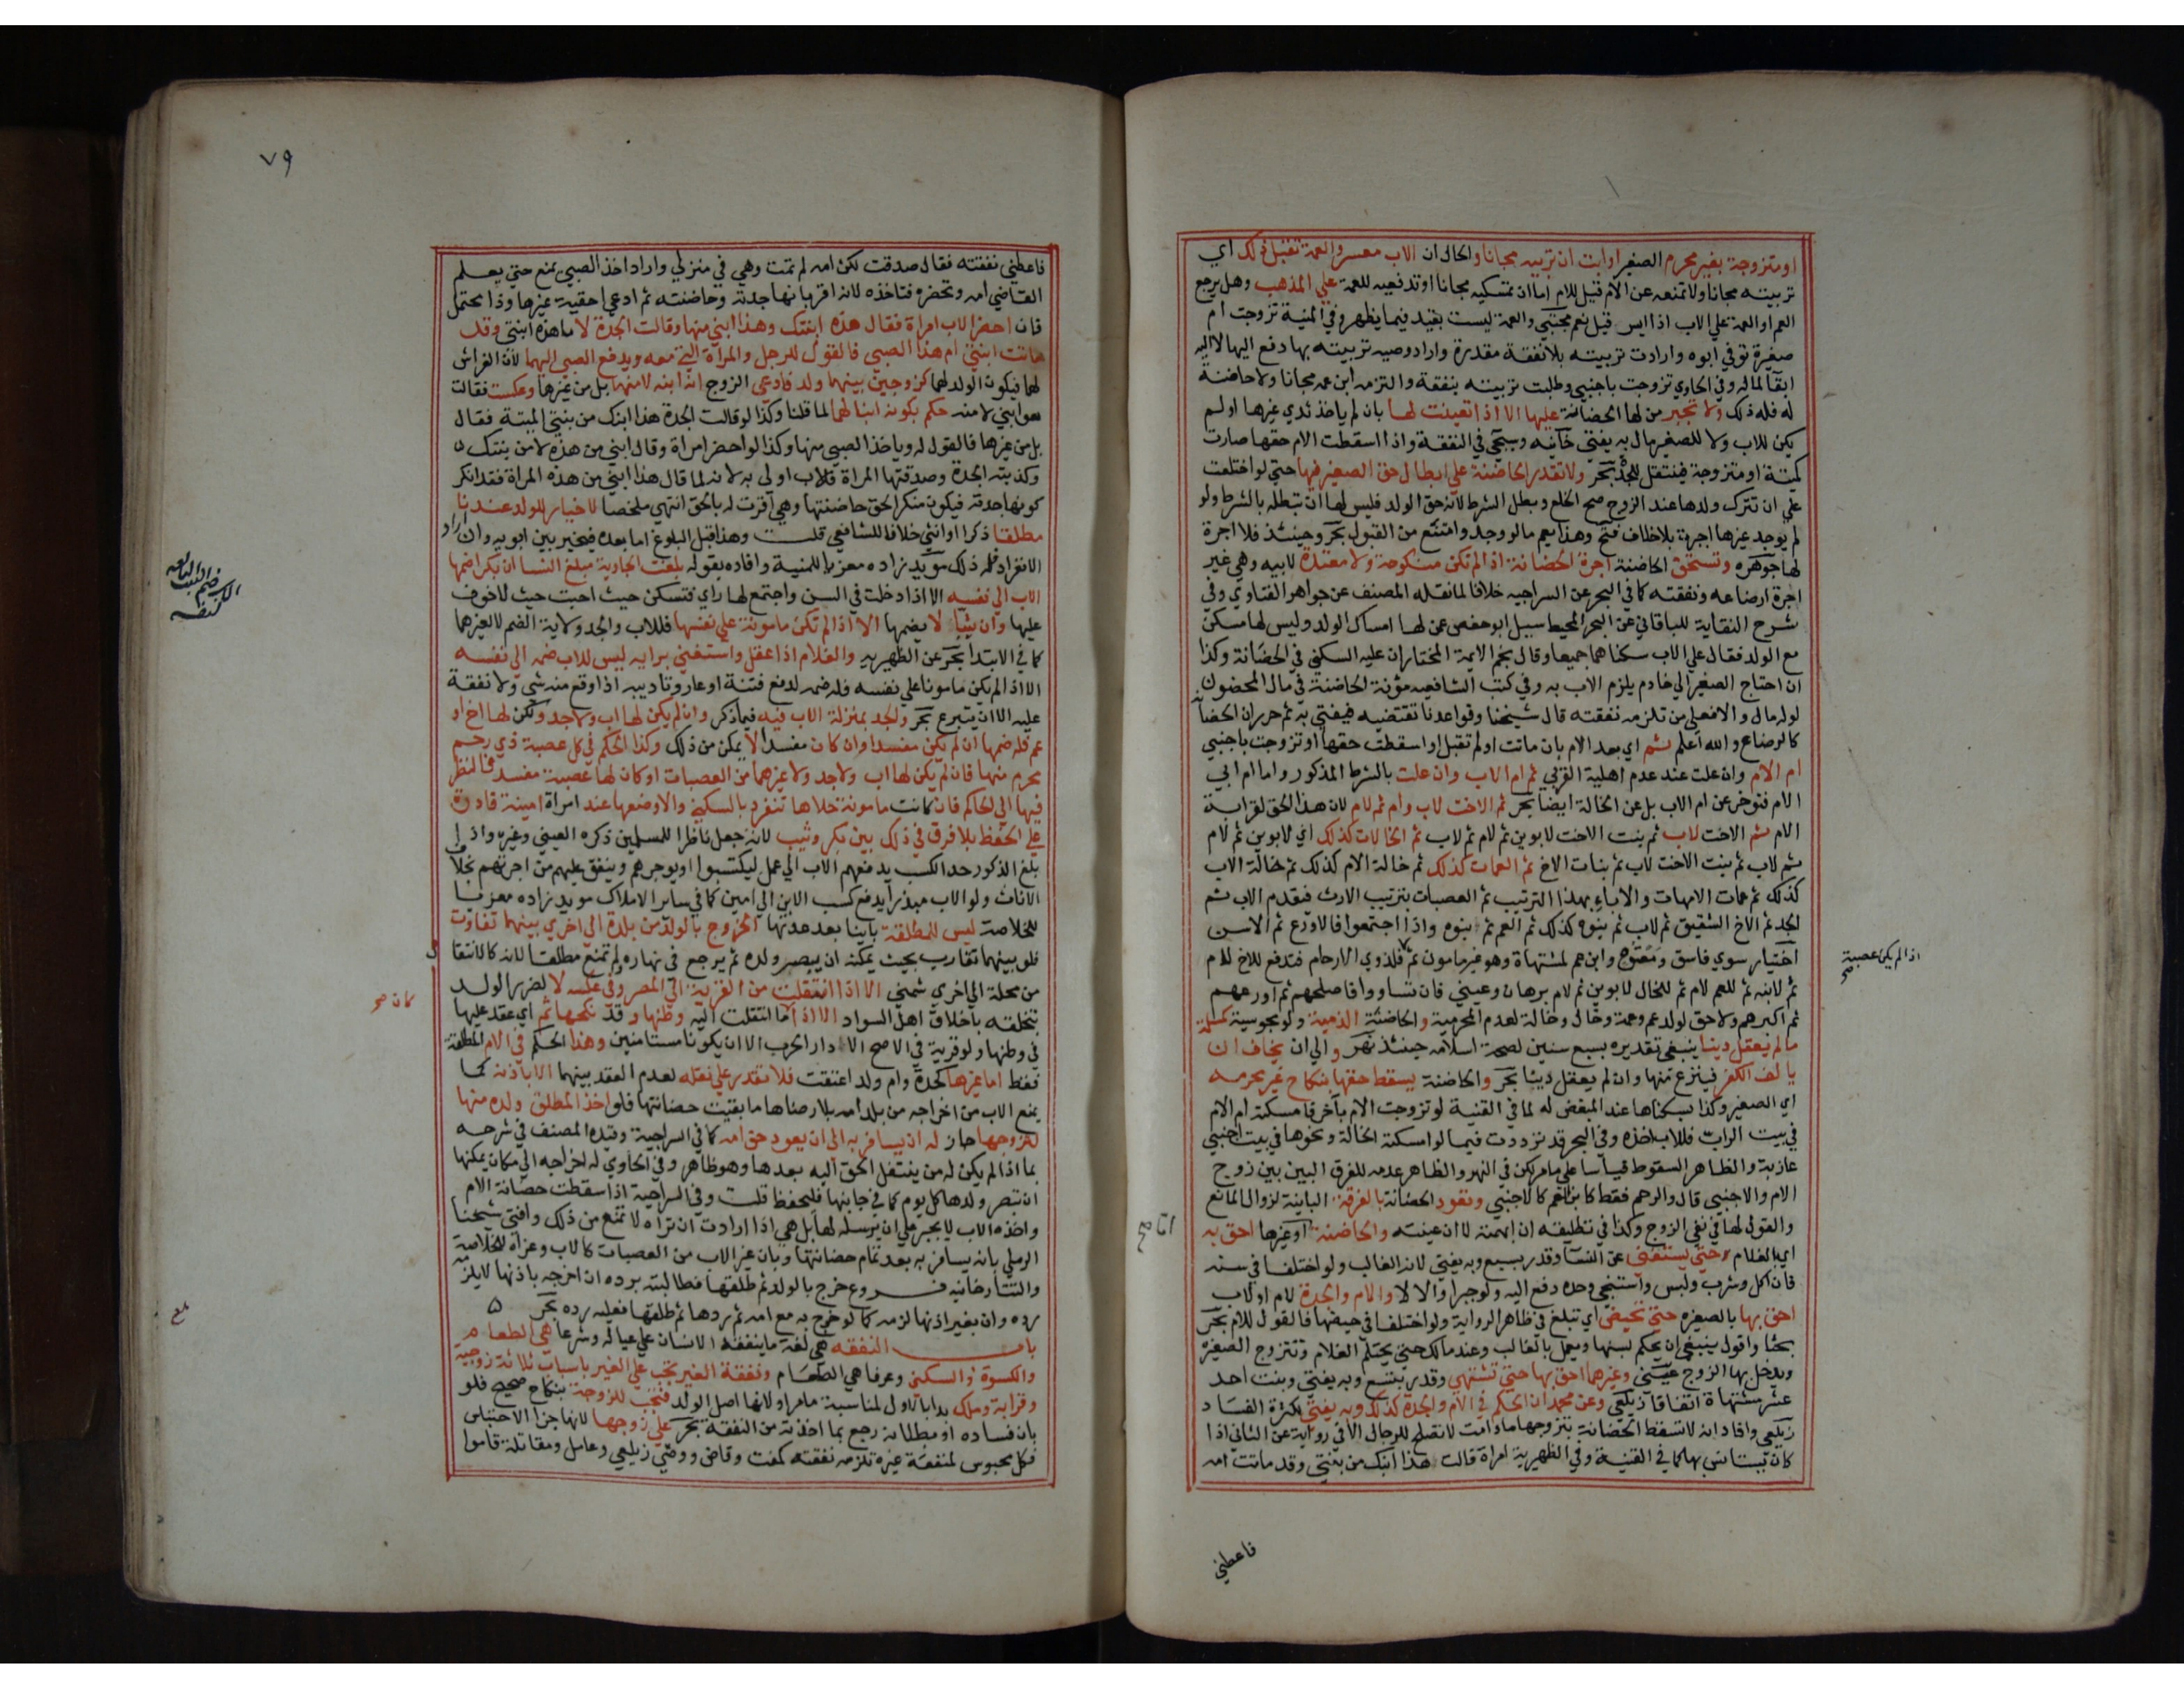 او متزوجة بغير محرم الصغير او ابت ان تربيه مجانا والحال ان الاب معسر والعمة تقبل ذلك اي
تربيته مجانا ولا تمنعه عن الام قيل للام اما ان تمسكيه مجانا او تدفعيه للعمة علي المذهب وهل يرجع
العم او العمة علي الاب اذا ايسر قيل نعم مجتبي والعمة ليست بقيد فيما يظهر وفي المنية تزوجت ام
صغيرة توفي ابوه وارادت تربيته بلا نفقة مقدرة واراد وصيه تربيته بها دفع اليها لا اليه
ابقا لماله وفي الحاوي تزوجت باجنبي وطلبت تربيته بنفقة والتزمه ابن عمه مجانا ولا حاضنة
له فله ذلك ولا تجبر من لها الحضانة عليها الا اذا تعينت لها بان لم ياخذ ثدي غيرها او لم
يكن للاب ولا للصغير مال به يفتي خانيه وسيجي في النفقة واذا اسقطت الام حقها صارت
كميتة او متزوجة فينتقل للجدة بحر ولا تقدر الحاضنة علي ابطال حق الصغير فيها حتي لو اختلعت
علي ان تترك ولدها عند الزوج صح الخلع وبطل الشرط لانه حق الولد فليس لها ان تبطله بالشرط ولو
لم يوجد غيرها اجبرت بلا خلاف فتح وهذا يعم ما لو وجد وامتنع من القبول بحر وحينئذ فلا اجرة
لها جوهره وتستحق الحاضنة اجرة الحضانة اذا لم تكن منكوحة ولا معتدة لابيه وهي غير
اجرة ارضاعه ونفقته كما في البحر عن السراجيه خلافا لما نقله المصنف عن جواهر الفتاوي وفي
شرح النقاية للباقاني عن البحر المحيط سييل ابو حفص عن لها امساك الولد وليس لها مسكن
مع الولد فقال علي الاب سكناهما جميعا وقال نجم الايمة المختار ان عليه السكني في الحضانة وكذا
ان احتاج الصغير الي خادم يلزم الاب به وفي كتب الشافعيه مؤنة الحاضنة في مال المحضون
لو له مال والا فعلي من تلزمه نفقته قال شيخنا وقواعدنا تقتضيه فيفتي به ثم حرر ان الحضانه
كالرضاع والله اعلم ثم اي بعد الام بان ماتت او لم تقبل او اسقطت حقها او تزوجت باجنبي
ام الام وان علت عند عدم اهلية القربي ثم ام الاب وان علت بالشرط المذكور واما ام ابي
الام فتوخر عن ام الاب بل عن الخالة ايضا بحر ثم الاخت لاب وام ثم لام لان هذا الحق لقرابة
الام ثم الاخت لاب ثم بنت الاخت لابوين ثم لام ثم لاب ثم الخالات كذلك اي لابوين ثم لام
ثم لاب ثم بنت الاخت لاب ثم بنات الاخ ثم العمات كذلك ثم خالة الام كذلك ثم خالة الاب
كذلك ثم عمات الامهات والاباء بهذا الترتيب ثم العصبات بترتيب الارث فيقدم الاب ثم
الجد ثم الاخ الشقيق ثم لاب ثم بنوه كذلك ثم العم ثم بنوه واذا اجتمعوا فالاورع ثم الاسن
اختيار سوي فاسق ومعتوه وابن عم لمشتهاة وهو غير مامون ثم فلذوي الارحام فتدفع للاخ للام
ثم لابنه ثم للعم لام ثم للخال لابوين ثم لام برهان وعيني فان تساووا فاصلحهم ثم اورعهم
ثم اكبرهم ولا حق لولد عم وعمة وخال وخالة لعدم المحرمية والحاضنة الذمية ولو مجوسية كمسلمة
ما لم يعقل دينا ينبغي تقديره بسبع سنين لصحة اسلامه حينئذ نهر والي ان يخاف ان
يالف الكفر فينزع منها وان لم يعقل دينا بحر والحاضنة يسقط حقها بنكاح غير محرمه
اي الصغير وكذا بسكناها عند المبغض له لما في القنية لو تزوجت الام باخر فامسكته ام الام
في بيت الراب فللاب اخذه وفي البحر قد ترددت فيما لو امسكته الخالة ونحوها في بيت اجنبي
عازبة والظاهر السقوط قياسا علي ما مر لكن في النهر والظاهر عدمه للفرق البين بين زوج
الام والاجنبي قال والرحم فقط كابن العم كالاجنبي وتعود الحضانة بالفرقة البائنة لزوال المانع
والقول لها في نفي الزوج وكذا في تطليقه ان ابهمته لا ان عينته والحاضنة او غيرها احق به
اي بالغلام حتي يستغني عن النسا وقدر بسبع وبه يفتي لانه الغالب ولو اختلفا في سنه
فان اكل وشرب ولبس واستنجي وحده دفع اليه ولو جبرا والا لا والام والجدة لام او لاب
احق بها بالصغيره حتي تحيض اي تبلغ في ظاهر الرواية ولو اختلفا في حيضها فالقول للام بحر
بحثا واقول ينبغي ان يحكم بسنها ويعمل بالغالب وعند مالك حتي يحتلم الغلام وتتزوج الصغيره
ويدخل بها الزوج عيني وغيرهما احق بها حتي تشتهي وقدر بتسع وبه يفتي وبنت احد
عشر مشتهاة اتفاقا زيلعي وعن محمد ان الحكم في الام والجدة كذلك وبه يفتي لكثرة الفساد
زيلعي وافاد انه لا تسقط الحضانة بتزوجها ما دامت لا تصلح للرجال الا في رواية عن الثاني اذا
كان يستانس بها كما في القنية وفي الظهيرية امراة قالت هذا ابنك من بنتي وقد ماتت امه
اذا لم يكن عصبة صح
فاعطني
٧٩
فاعطني نفقته فقال صدقت لكن امه لم تمت وهي في منزلي واراد اخذ الصبي يمنع حتي يعلم
القاضي امه وتحضره فتاخذه لانه اقر بانها جدته وحاضنته ثم ادعي احقية غيرها وذا محتمل
فان احضر الاب امراة فقال هذه ابنتك وهذا ابني منها وقالت الجدة لا ما هذه ابنتي وقد
ماتت ابنتي ام هذا الصبي فالقول للرجل والمراة التي معه ويدفع الصبي اليهما لان الفراش
لهما فيكون الولد لهما كزوجين بينهما ولد فادعي الزوج انه ابنه لا منها بل من غيرها وعكست فقالت
هو ابني لا منه حكم بكونه ابنا لهما لما قلنا وكذا لو قالت الجدة هذا ابنك من بنتي الميتة فقال
بل من غيرها فالقول له وياخذ الصبي منها وكذا لو احضر امراة وقال ابني من هذه لا من بنتك
وكذبته الجدة وصدقتها المراة فالاب اولي به لانه لما قال هذا ابني من هذه المراة فقد انكر
كونها جدته فيكون منكرا لحق حاضنتها وهي اقرت له بالحق انتهي ملخصا لا خيار للولد عندنا
مطلقا ذكرا او انثي خلافا للشافعي قلت وهذا قبل البلوغ اما بعده فيخير بين ابويه وان اراد
الانفراد فله ذلك مويد زاده معزيا للمنية وافاده بقوله بلغت الجارية مبلغ النسا ان بكرا ضمها
الاب الي نفسه الا اذا دخلت في السن واجتمع لها راي فتسكن حيث احبت حيث لا خوف
عليها وان ثيبا لا يضمها الا اذا لم تكن مامونة علي نفسها فللاب والجد ولاية الضم لا لغيرهما
كما في الابتدا بحر عن الظهيريه والغلام اذا عقل واستغني برايه ليس للاب ضمه الي نفسه
الا اذا لم يكن مامونا علي نفسه فله ضمه لدفع فتنة او عار وتاديبه اذا وقع منه شي ولا نفقة
عليه الا ان يتبرع بحر والجد بمنزلة الاب فيه فيما ذكر وان لم يكن لها اب ولا جد ولكن لها اخ او
عم فله ضمها ان لم يكن مفسدا وان كان مفسدا لا يمكن من ذلك وكذا الحكم في كل عصبة ذي رحم
محرم منها فان لم يكن لها اب ولا جد ولا غيرهما من العصبات او كان لها عصبة مفسد فالنظر
فيها الي الحاكم فان كانت مامونة خلاها تنفرد بالسكني والا وضعها عند امراة امينة قادرة
علي الحفظ بلا فرق في ذلك بين بكر وثيب لانه جعل ناظرا للمسلمين ذكره العيني وغيره واذا
بلغ الذكور حد الكسب يدفعهم الاب الي عمل ليكتسبوا او يوجرهم وينفق عليهم من اجرتهم بخلاف
الاناث ولو الاب مبذرا يدفع كسب الابن الي امين كما في ساير الاملاك مويد زاده معزيا
للخلاصة ليس للمطلقة باينا بعد عدتها الخروج بالولد من بلدة الي اخري بينهما تفاوت
فلو بينهما تقارب بحيث يمكنه ان يبصر ولده ثم يرجع في نهاره لم تمنع مطلقا لانه كالانتقال
من محلة الي اخري شمني الا اذا انتقلت من القرية الي المصر وفي عكسه لا لضرر الولد
بتخلقه باخلاق اهل السواد الا اذا كان ما انتقلت اليه وطنها وقد نكحها ثم اي عقد عليها
في وطنها ولو قرية في الاصح الا دار الحرب الا ان يكونا مستامنين وهذا الحكم في الام المطلقة
فقط اما غيرها كجدة وام ولد اعتقت فلا تقدر علي نقله لعدم العقد بينهما الا باذنه كما
يمنع الاب من اخراجه من بلد امه بلا رضاها ما بقيت حضانتها فلو اخذ المطلق ولده منها
لتزوجها جاز له ان يسافر به الي ان يعود حق امه كما في السراجية وقيده المصنف في شرحه
بما اذا لم يكن له من ينتقل الحق اليه بعدها وهو ظاهر وفي الحاوي له اخراجه الي مكان يمكنها
ان تبصر ولدها كل يوم كما في جانبها فليحفظ قلت وفي السراجية اذا سقطت حضانة الام
واخذه الاب لا يجبر علي ان يرسله لها بل هي اذا ارادت ان تراه لا تمنع من ذلك وافتي شيخنا
الرملي بانه يسافر به بعد تمام حضانتها وبان غير الاب من العصبات كالاب وعزاه للخلاصة
والتتارخانيه فروع خرج بالولد ثم طلقها فطالبته برده ان اخرجه باذنها لا يلزمه
رده وان بغير اذنها لزمه كما لو خرج به مع امه ثم ردها ثم طلقها فعليه رده بحر
باب النفقه هي لغة ما ينفقه الانسان علي عياله وشرعا هي الطعام
والكسوة والسكني وعرفا هي الطعام ونفقة الغير تجب علي الغير باسباب ثلاثة زوجية
وقرابة وملك بدا بالاول لمناسبة ما مر او لانها اصل الولد فتجب للزوجة بنكاح صحيح فلو
بان فساده او بطلانه رجع بما اخذته من النفقة بحر علي زوجها لانها جزا الاحتباس
فكل محبوس لمنفعة غيره تلزمه نفقته كمفت وقاض ووصي زيلعي وعامل ومقاتلة قاموا
كان صح
بلغ